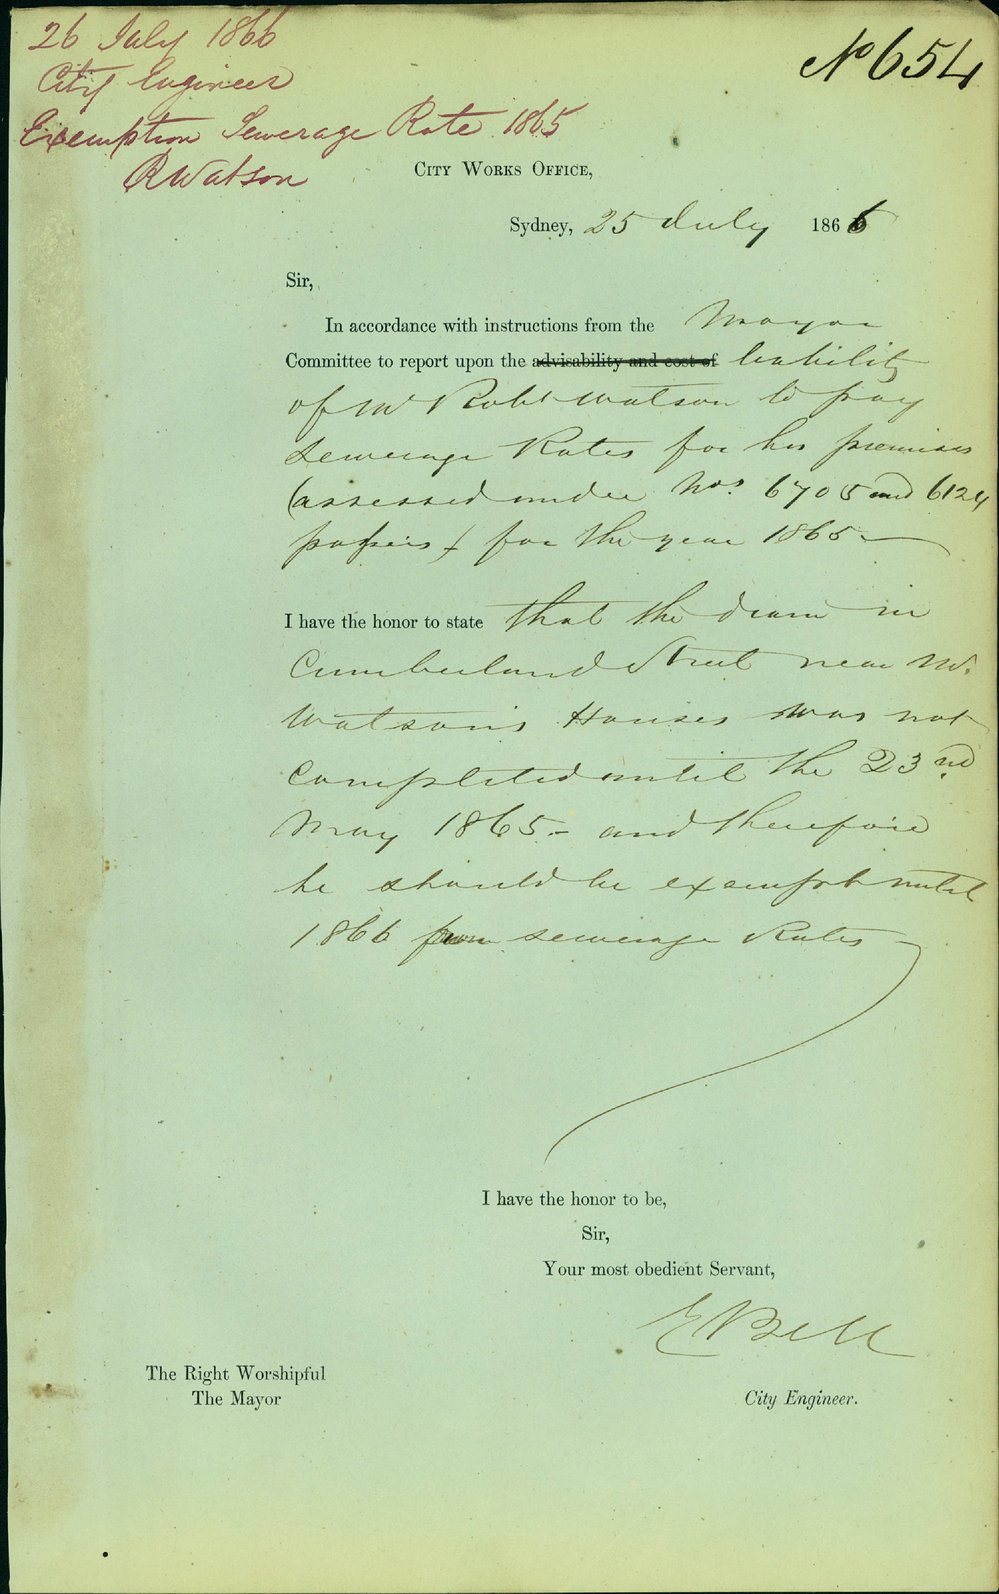 26 July 1866
City Engineer
Exemption Sewerage Rate 1865
R Watson
No 654
CITY WORKS OFFICE,
Sydney, 25 July 1866
Sir,
In accordance with instructions from the Mayor
Committee to report upon the advisability and cost of liability
of Mr Robt Watson to pay
Sewerage Rates for his premises
(assessed under Nos. 6705 and 6124
papers) for the year 1865
I have the honor to state that the drain in
Cumberland Street near Mr.
Watson's Houses was not
completed until the 23rd
May 1865 - and therefore
he should be exempt until
1866 from sewerage Rates
I have the honor to be,
Sir,
Your most obedient Servant,
E Bell
The Right Worshipful
The Mayor
City Engineer.